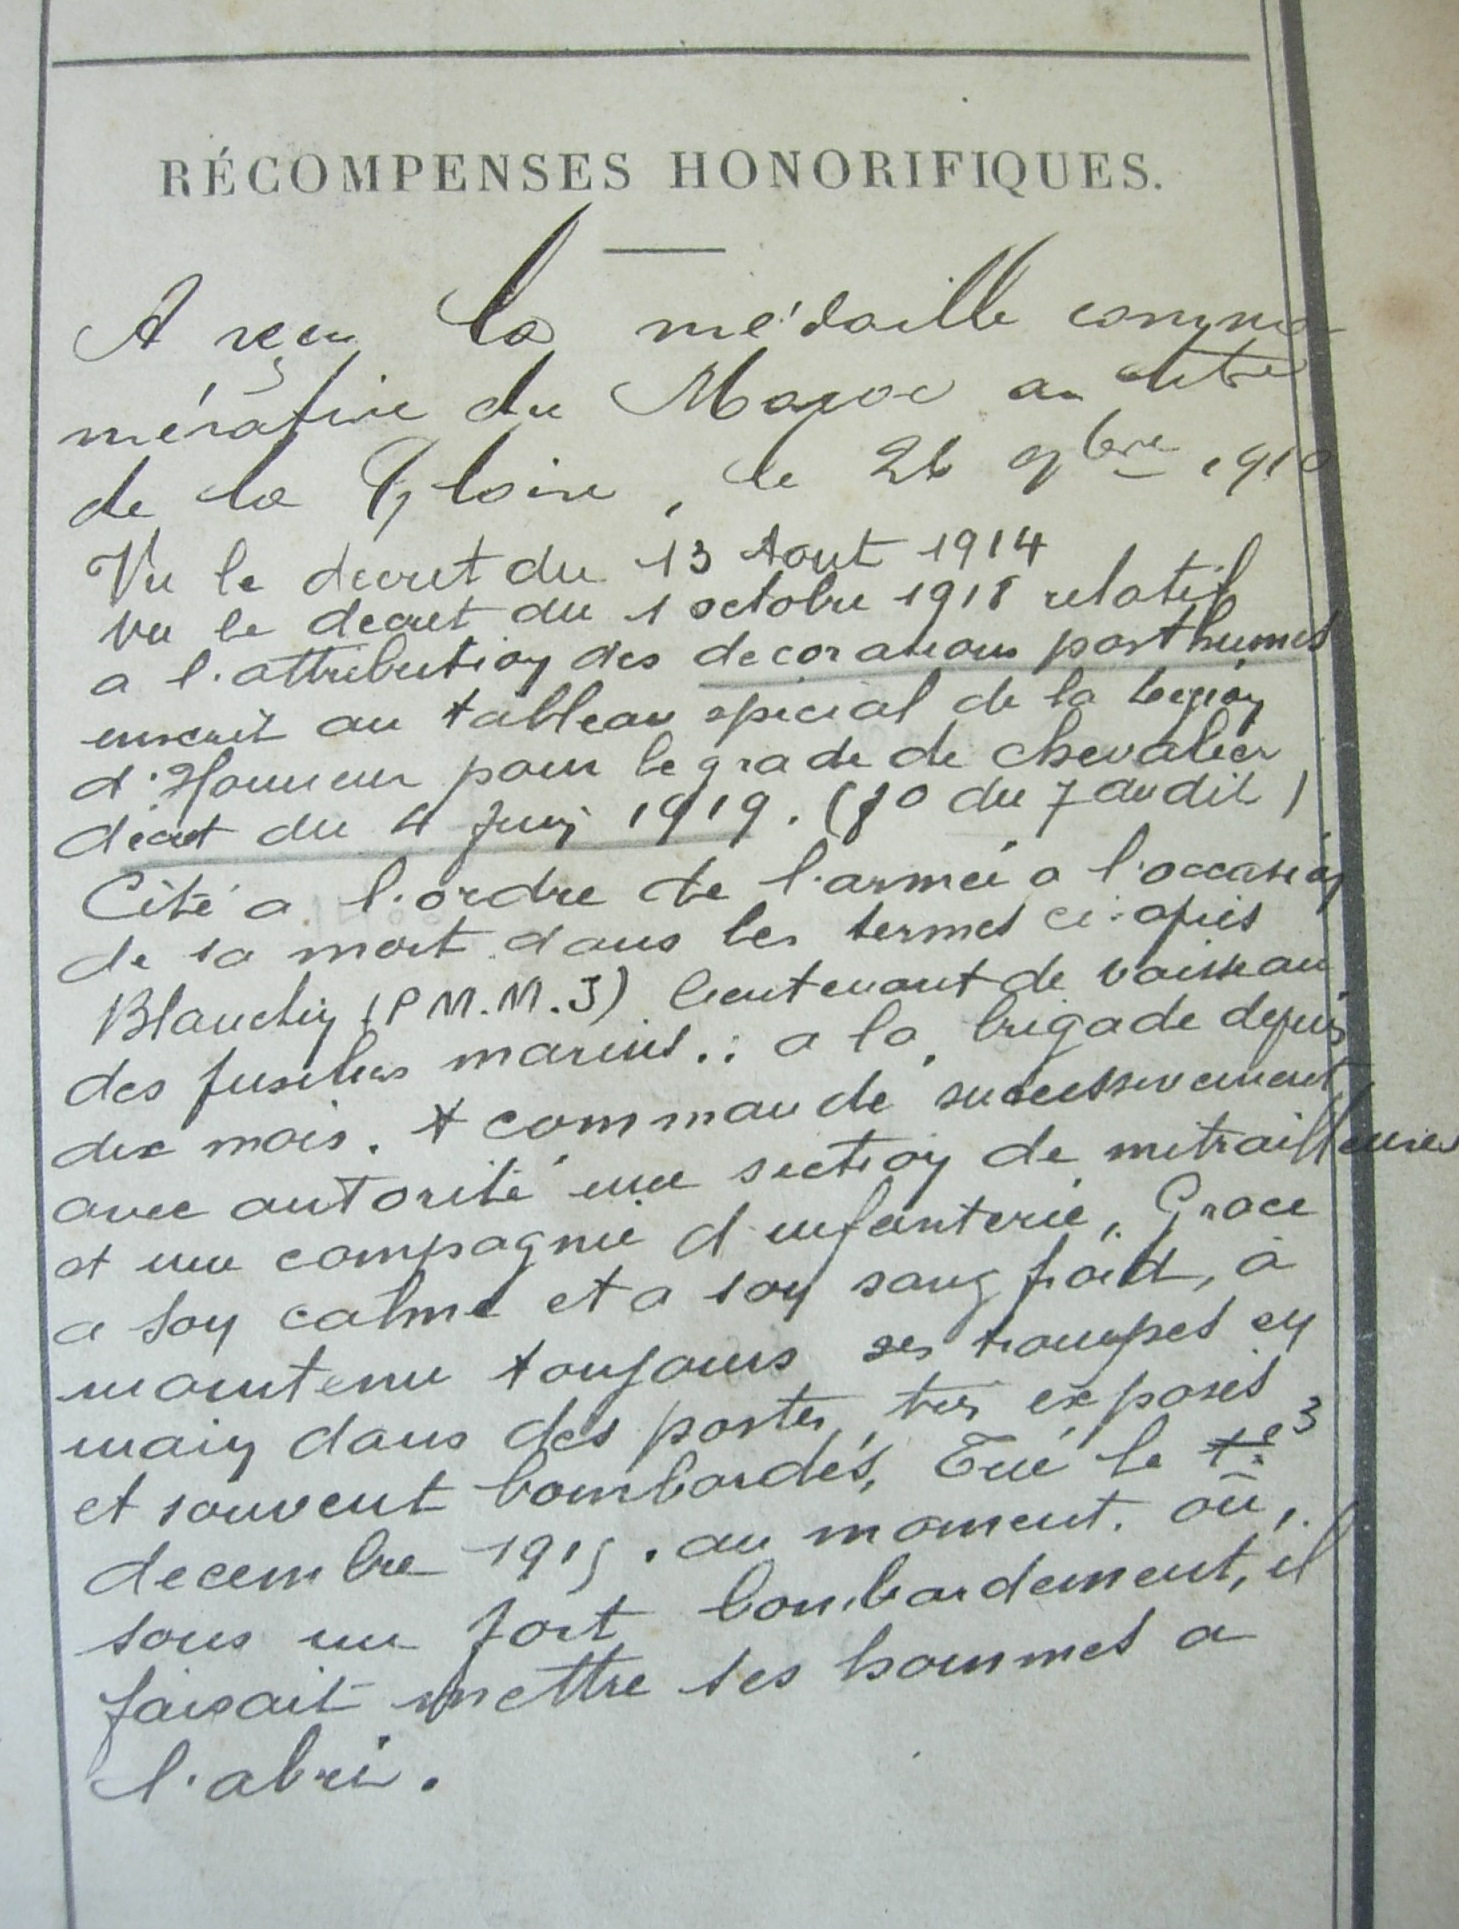 RÉCOMPENSES HONORIFIQUES.
A reçu la médaille commé
mérative du Maroc au titre
de la Gloire, le 26 9bre 1910
Vu le decret du 13 Aout 1914
vu le decret du 1 octobre 1918 relatif
a l'attribution des decorations posthumes
inscrit au tableau spécial de la Legion
d'Honneur pour le grade de chevalier
décret du 4 Juin 1919. (JO du 7 dudit)
Cité a l'ordre de l'armée a l'occasion
de sa mort dans les termes ci-après
Blanchin (P M.M.J) lieutenant de vaisseau
des fusiliers marins.: a la brigade depuis
dix mois. A commandé successivement
avec autorité une section de mitrailleuses
et une compagnie d infanterie. Grace
a son calme et a son sang froid, à
maintenu toujours ses troupes en
main dans des postes très exposés
et souvent bombardés, Tué le 3
decembre 1915. au moment. où,
sous un fort bombardement, il
faisait mettre ses hommes a
l'abri.